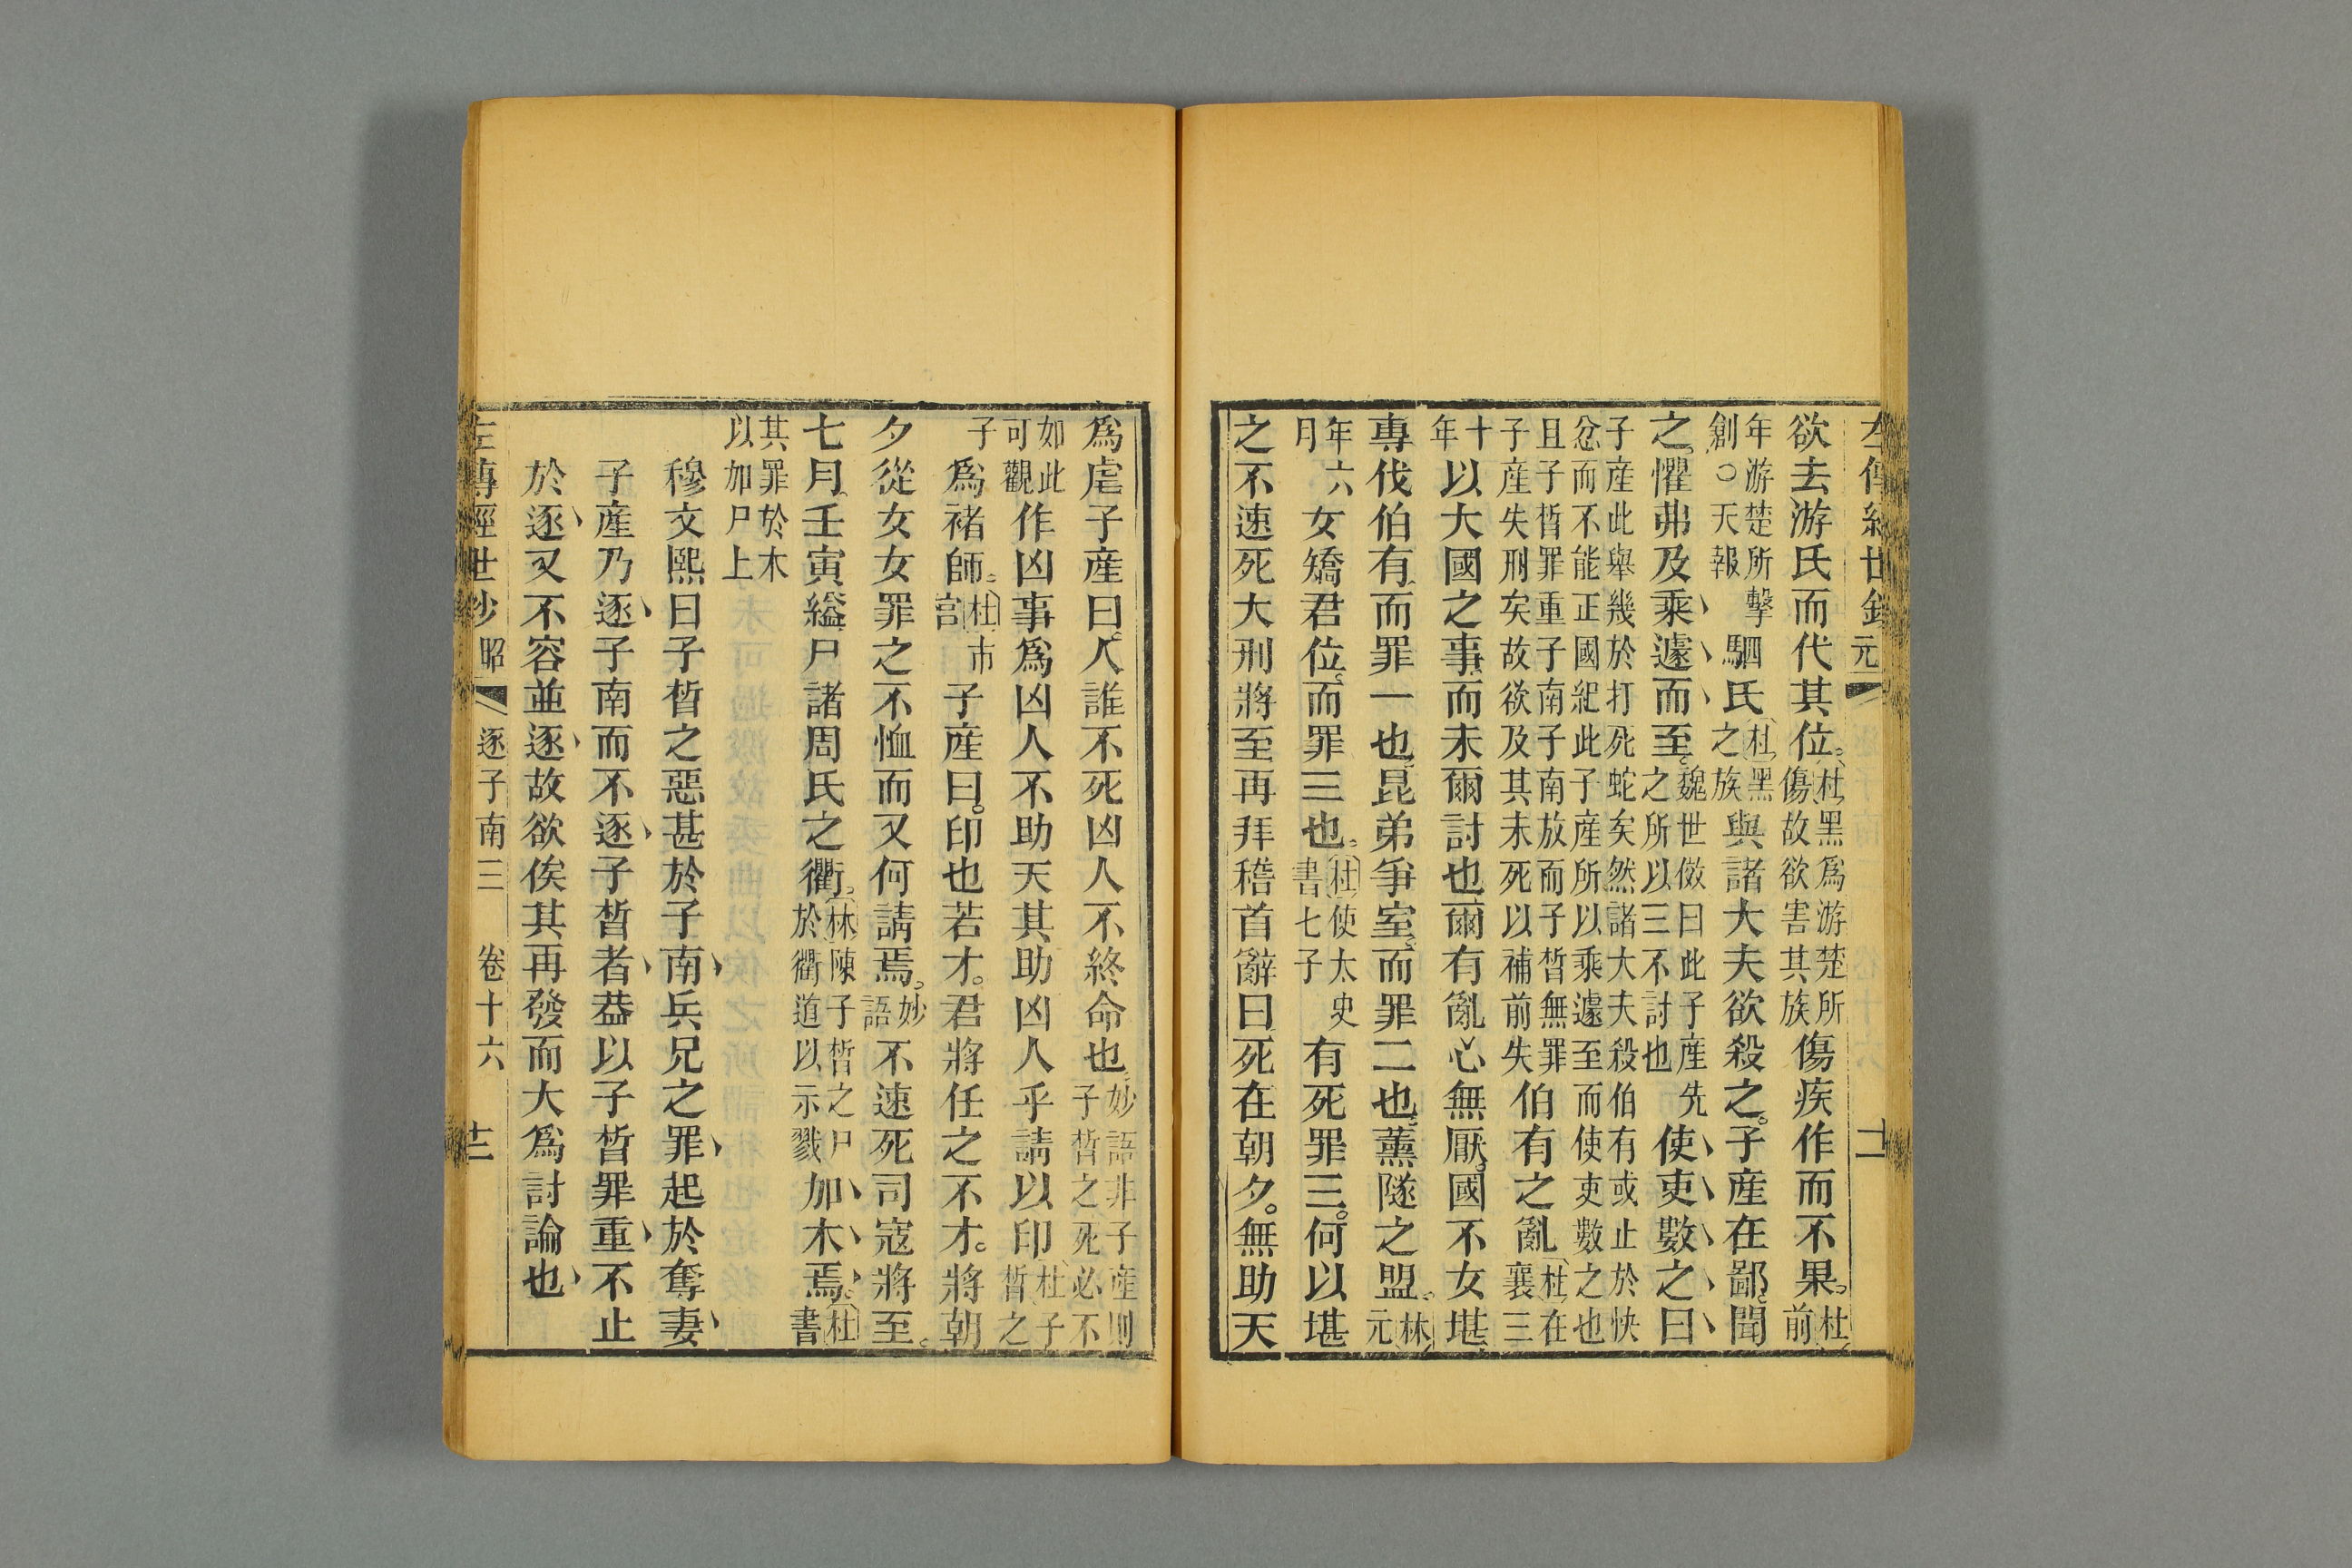 元
欲去游氏而代其位。杜黑爲游楚所傷故欲害其族傷疾作而不果。杜前
年游楚所擊創○天報駟氏杜黑之族與諸大夫欲殺之。子產在鄙。聞
之。懼弗及乘遽而至。魏世傚曰此子產先之所以三不討也使吏數之曰
子產此舉幾於打死蛇矣然諸大夫殺伯有或止於快
忿而不能正國紀此子產所以乘遽至而使吏數之也
且子皙罪重子南子南放而子皙無罪子產失刑矣故欲及其未死以補前失伯有之亂杜在襄三
十年以大國之事而未爾討也爾有亂心無厭。國不女堪
專伐伯有而罪一也。昆弟爭室。而罪二也。薰隧之盟。林元
年六月女矯君位。而罪三也。杜使太史書七子有死罪三。何以堪
之不速死大刑將至再拜稽首辭曰死在朝夕。無助天
爲虐子產曰。人誰不死凶人不終命也。妙語非子產則子皙之死必不
如此可觀作凶事爲凶人不助天其助凶人乎請以印杜子皙之
子爲褚師。杜市官子產曰。印也若才。君將任之不才。將朝
夕從女女罪之不恤而又何請焉。妙語不速死司寇將至。
七月。壬寅縊尸諸周氏之衢。林陳子皙之尸於衢道以示戮加木焉。杜書
其罪於木以加尸上
穆文熙曰子皙之惡甚於子南兵兄之罪起於奪妻
子產乃逐子南而不逐子皙者葢以子皙罪重不止
於逐又不容並逐故欲俟其再發而大爲討論也
左傳經世鈔 昭 逐子南三 卷十六 十二